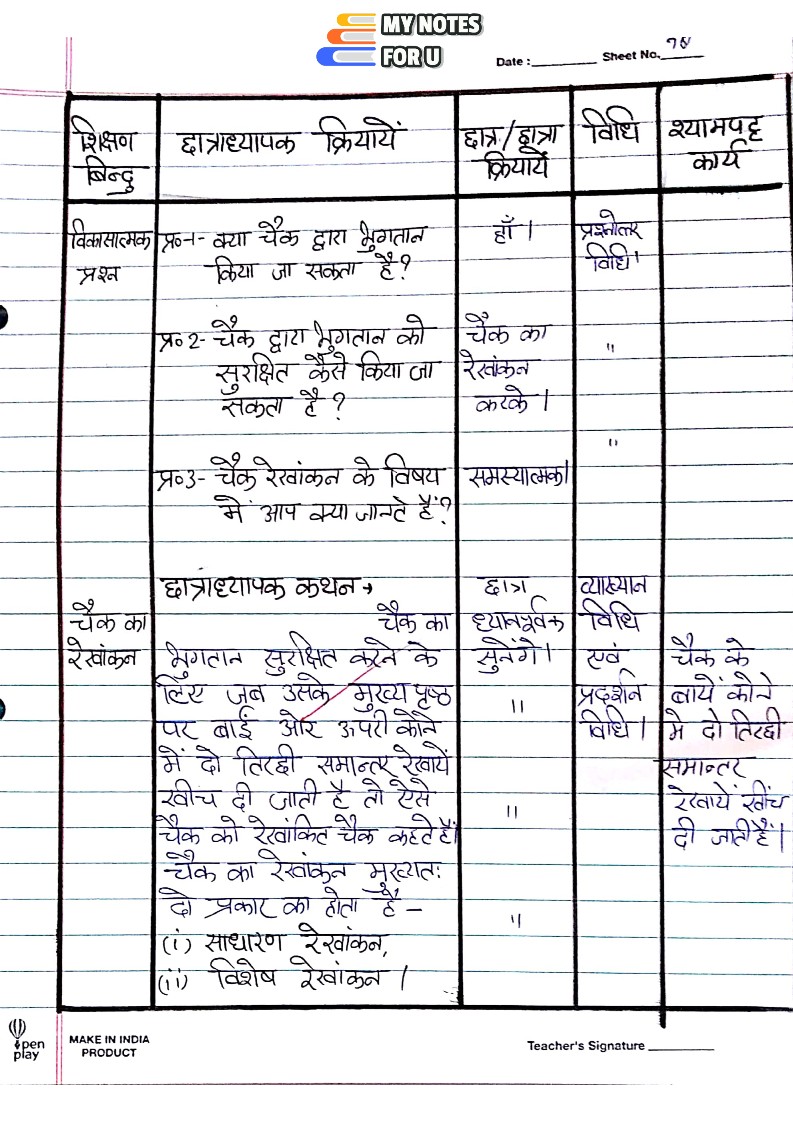 MY NOTES
FOR U
Date :
Sheet No.
शिक्षण
बिन्दु
छात्राध्यापक क्रियायें
छात्र/छात्रा
क्रियायें
विधि
श्यामपट्ट
कार्य
विकासात्मक
प्रश्न
प्र०-1- क्या चैक द्वारा भुगतान
किया जा सकता है?
हाँ।
प्रश्नोत्तर
विधि।
प्र० 2- चैक द्वारा भुगतान को
सुरक्षित कैसे किया जा
सकता है ?
चैक का
रेखांकन
करके।
"
प्र०3- चैक रेखांकन के विषय
में आप क्या जानते हैं?
समस्यात्मक।
"
चैक का
रेखांकन
छात्राध्यापक कथन →
चैक का
भुगतान सुरक्षित करने के
लिए जब उसके मुख्य पृष्ठ
पर बाईं ओर ऊपरी कोने
में दो तिरछी समान्तर रेखायें
खींच दी जाती है तो ऐसे
चैक को रेखांकित चैक कहते हैं।
चैक का रेखांकन मुख्यतः
दो प्रकार का होता है –
(i) साधारण रेखांकन,
(ii) विशेष रेखांकन।
छात्र
ध्यानपूर्वक
सुनेंगे।
"
"
"
व्याख्यान
विधि
एवं
प्रदर्शन
विधि।
चैक के
बायें कोने
मे दो तिरछी
समान्तर
रेखायें खींच
दी जाती हैं।
open
play
MAKE IN INDIA
PRODUCT
Teacher's Signature